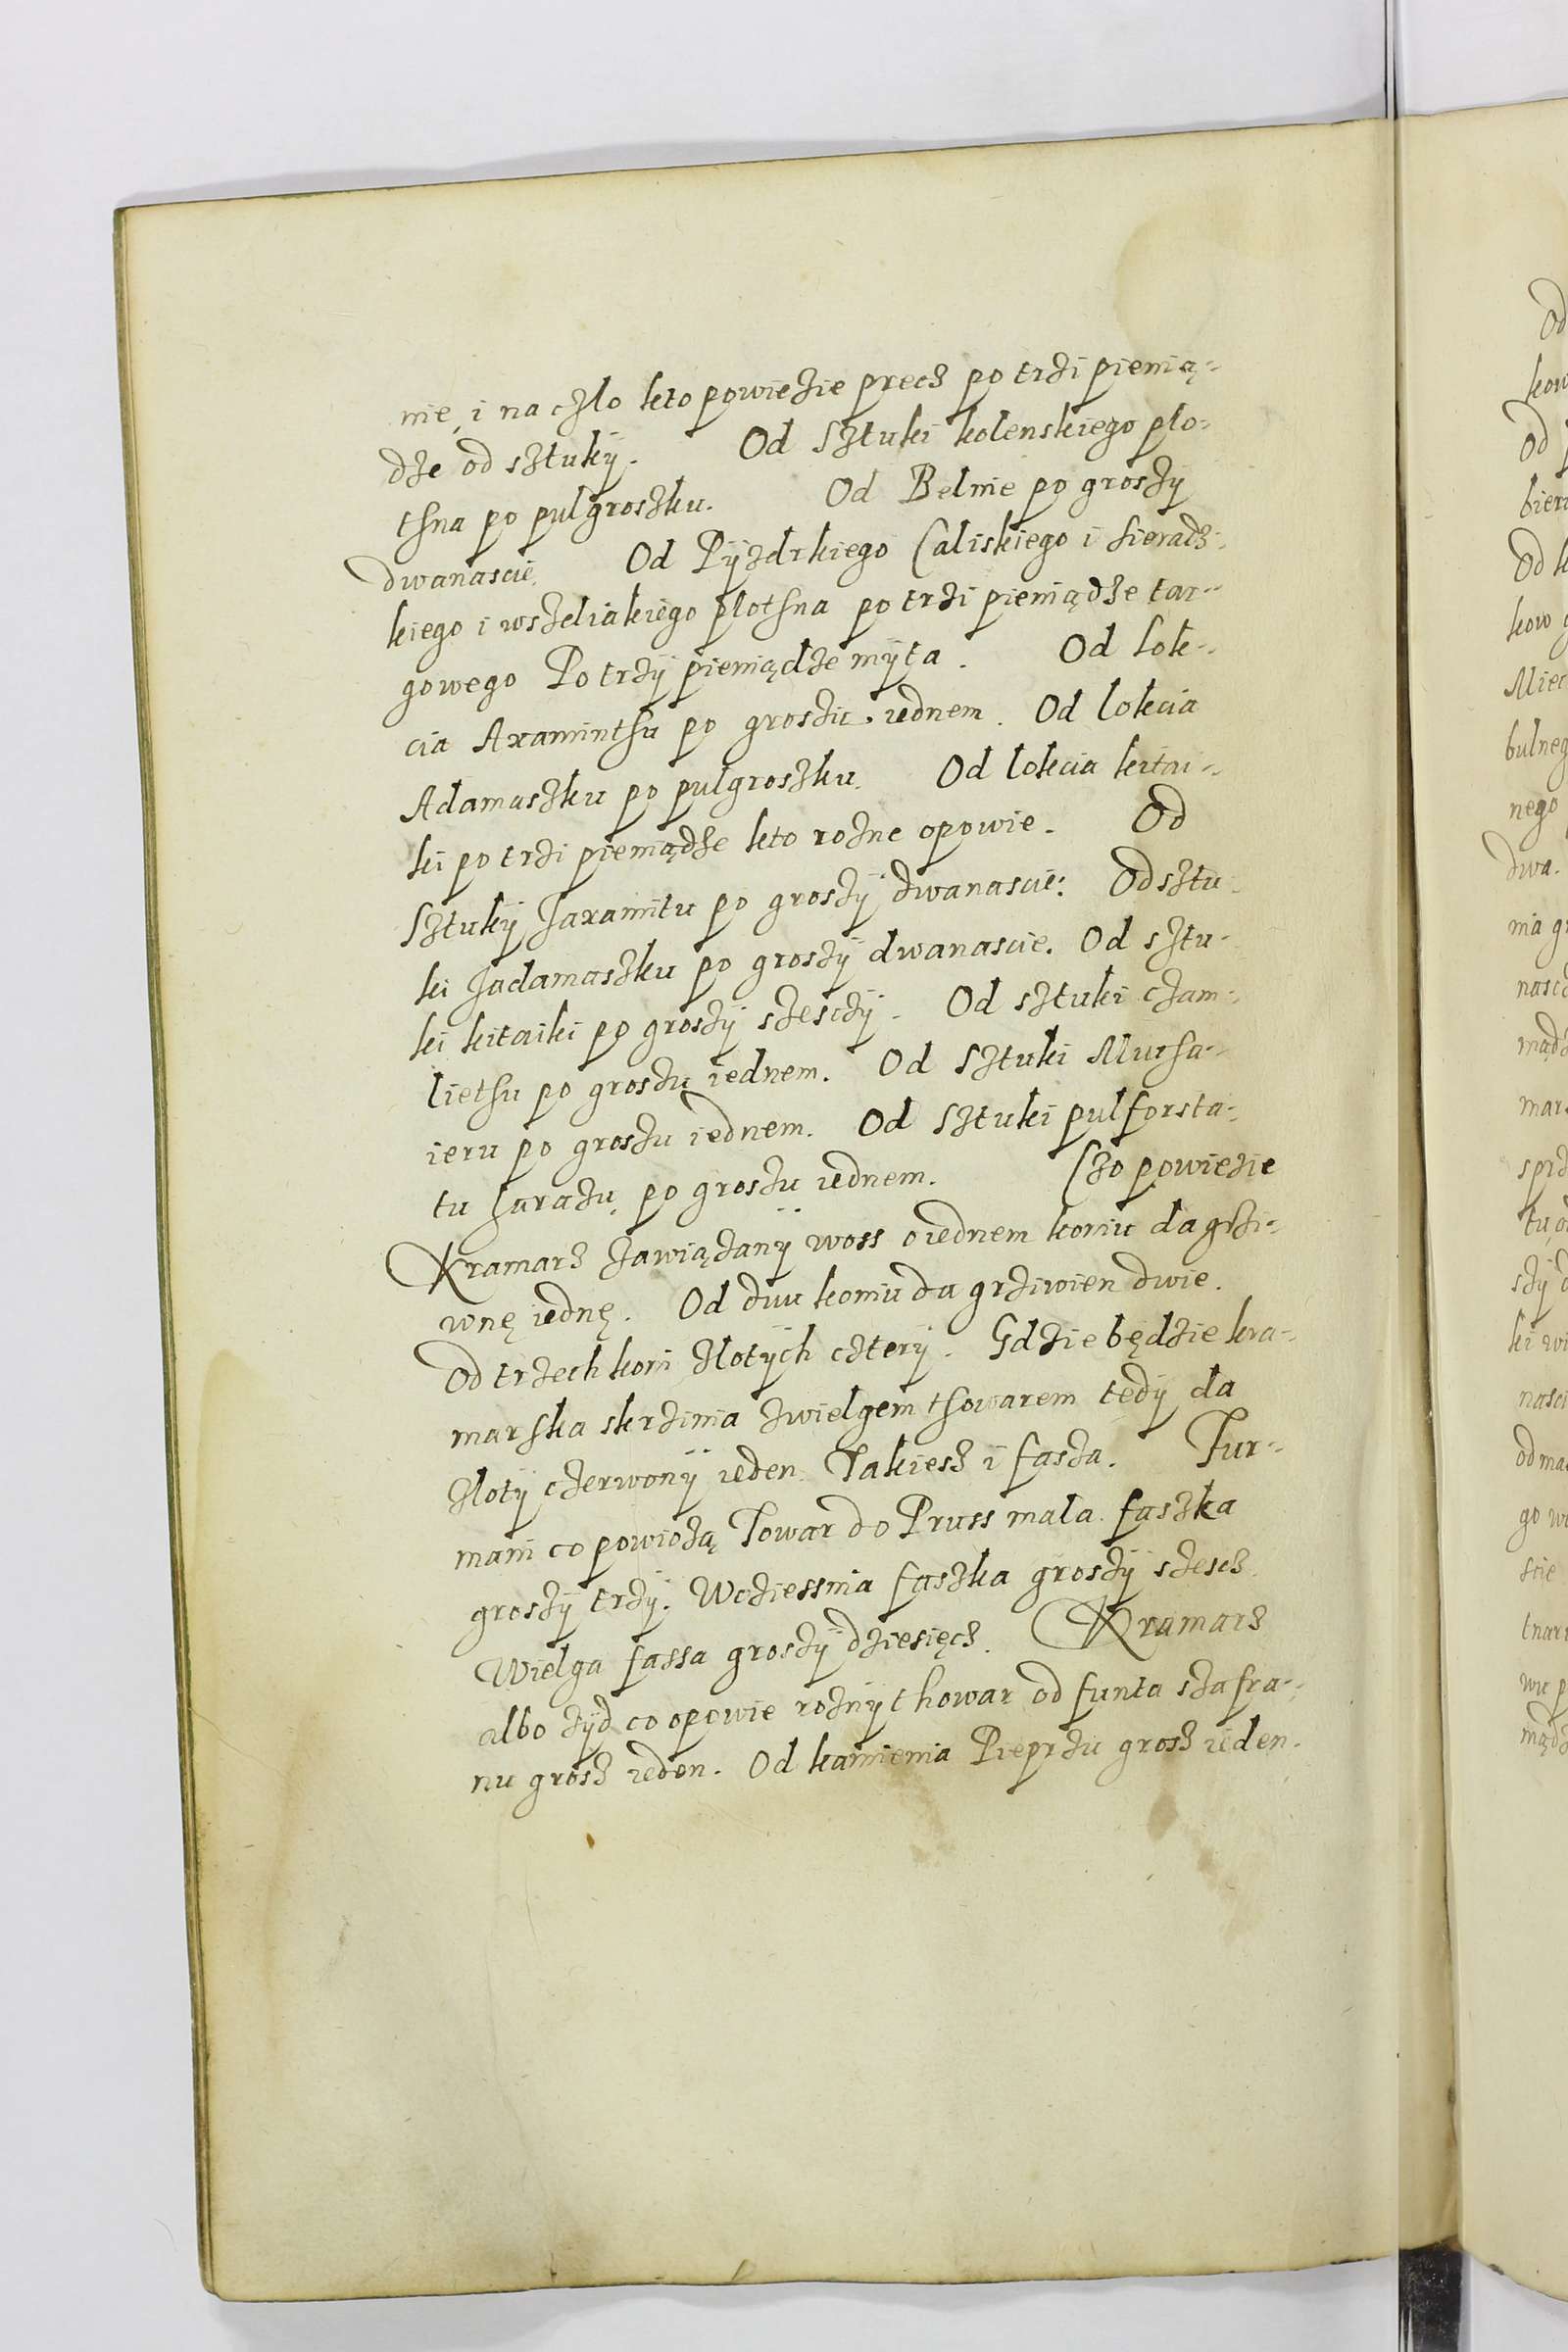 nie, i na czlo kto powiezie precz po trzi pienią-
dze od sztuky. Od Sztuki kolenskiego plo-
thna po pulgroszku. Od Belnie po groszÿ
dwanascie. Od Pÿzdrkiego Caliskiego i Sieradz-
kiego i wszeliakiego plothna po trzi pieniądze tar-
gowego Po trzÿ pieniądze mÿta. Od Lok-
cia Axaminthu po groszu iednem. Od lokcia
Adamaszku po pulgroszku. Od lokcia kitai-
ki po trzi pieniądze kto rozne opowie. Od
Sztukÿ Jaxamitu po groszÿ dwanascie: Od sztu-
ki Jadamaszku po groszÿ dwanascie. Od sztu-
ki kitaiki po groszÿ szesczÿ. Od sztuki czam-
liethu po groszu iednem. Od Sztuki Mucha-
ieru po groszu iednem. Od Sztuki pulforsta-
tu Harazu po groszu iednem. Czo powiezie
Kramarz zawiązanÿ woss o iednem koniu da grzi-
wnę iednę. Od dwu koniu da grziwien dwie.
Od trzech koni zlotÿch czterÿ. Gdzie będzie kra-
marska skrzinia zwielgem thowarem tedÿ da
zlotÿ czerwonÿ ieden. Takiesz i fasza. Fur-
mani co powiozą Towar do Pruss mala faszka
groszÿ trzÿ. Wcziessnia faszka groszÿ szescz.
Wielga fassa groszÿ dziesięcz. Kramarz
albo zÿd co opowie roznÿ thowar od funta szafra-
nu grosz ieden. Od kamienia Pieprzu grosz ieden.
Od
Od
bier
Od k
kow
Miec
bulneg
nego
dwa.
nia gr
spiz
ki
nasci
od
go
scie